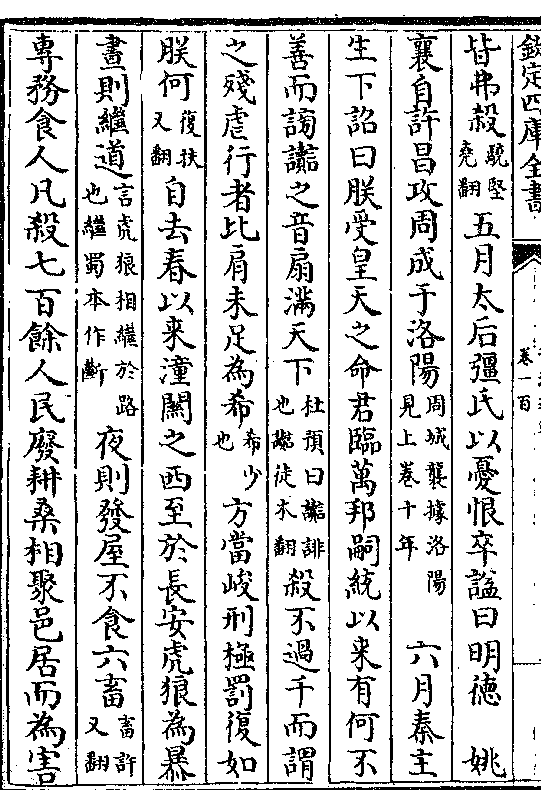 欽定四庫全書
卷一百
皆弗殺驍堅堯翻五月太后彊氏以憂恨卒諡曰明德 姚
襄自許昌攻周成于洛陽周城襲據洛陽見上卷十年 六月秦主
生下詔曰朕受皇天之命君臨萬邦嗣統以来有何不
善而謗讟之音扇滿天下杜預曰讟誹也讟徒木翻殺不過千而謂
之殘虐行者比肩未足為希希少也方當峻刑極罰復如
朕何復扶又翻自去春以来潼關之西至於長安虎狼為暴
晝則繼道言虎狼相繼於路也繼蜀本作斷夜則發屋不食六畜畜許又翻
專務食人凡殺七百餘人民廢耕桑相聚邑居而為害